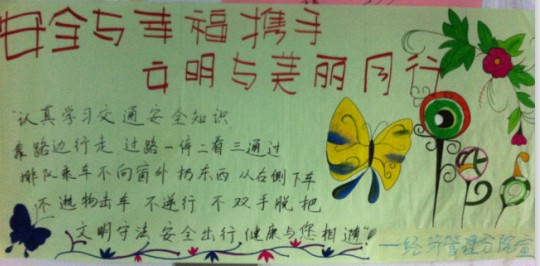 安全与幸福携手
文明与美丽同行
"认真学习交通安全知识
靠路边行走 过路一停二看三通过
排队乘车不向窗外扔东西 从右侧下车
不逃物击车 不逆行 不双手脱把
文明守法 安全出行 健康与您相遇"
一经济管理分院宣